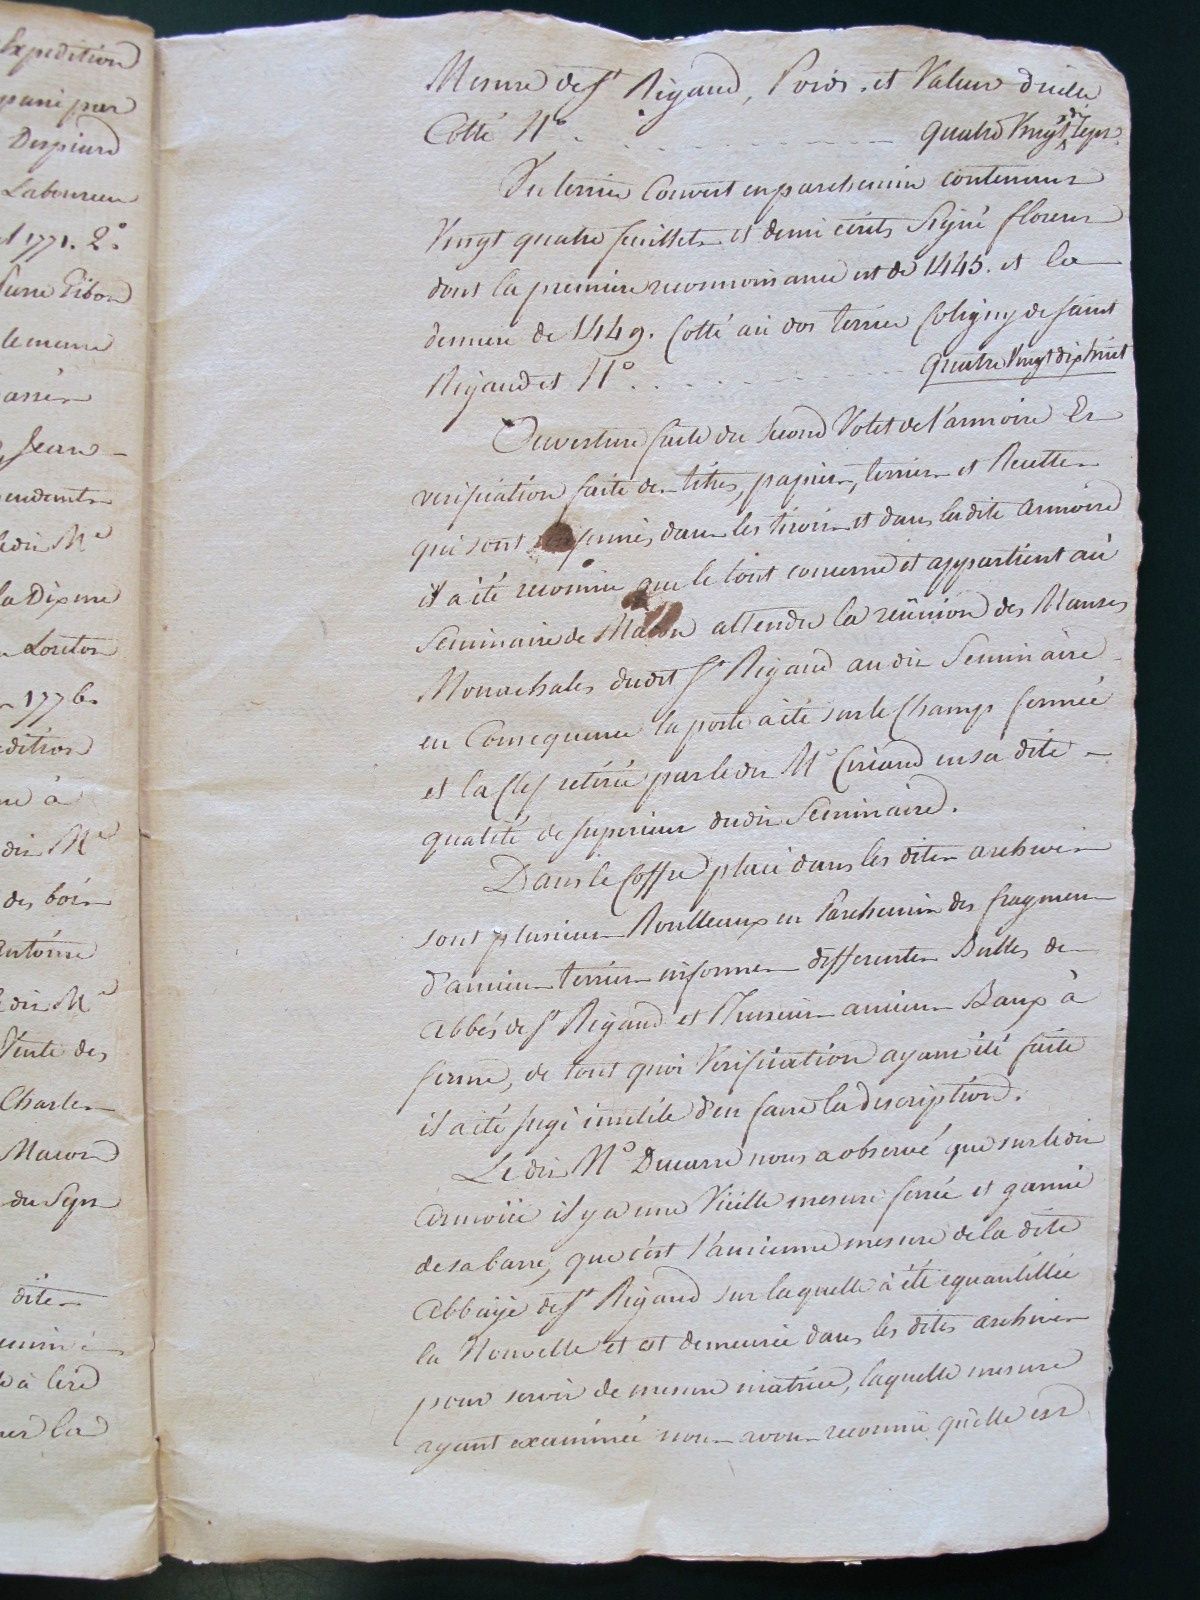 Expedition
par
Despierd
Laboureur
1771. 2°
Pierre Tibon
le meme
Jean
ledit Me
la Dixme
1776.
edition
à
dit Me
des bois
Antoine
dit Me
Vente des
Charles
Macon
du Sr
dite
à lire
la
Mesure de St Rigaud, Poids, et Valeur d'icelle
Cotté N° . . . quatre Vingt dix sept.
Un terrier Couvert en parchemin contenant
Vingt quatre feuillets et demi écrits Signé floreur
dont la premiere reconnoissance est de 1445. et la
derniere de 1449. Cotté au dos terrier Coligny de saint
Rigaud et N° . . . quatre Vingt dix huit
Ouverture faite du second Volet de l'armoire Et
verification faite des titres, papiers, terriers et Recettes
qui sont enfermés dans les tiroirs et dans ladite armoire
il a été reconnu que le tout concerne et appartient au
Seminaire de Macon attendu la reünion des Manses
Monachales dudit St Rigaud audit Seminaire
en Consequence la porte a été sur le Champ fermée
et la Clef retirée par ledit Me Ciriaud en sa dite
qualité de superieur dudit Seminaire.
Dans le Coffre placé dans les dites archives
sont plusieurs Roulleaux en Parchemin des fragmens
d'anciens terriers informes differentes Bulles de
abbés de St Rigaud et Plusieurs anciens Baux à
ferme, de tout quoi Verification ayant été faite
il a été jugé inutile d'en faire la description.
Le dit Me Ducarre nous a observé que sur ledit
armoire il y a une Vieille mesure ferrée et garnie
de sa barre, que c'est l'ancienne mesure de la dite
abbaye de St Rigaud sur laquelle à été equantillée
la Nouvelle et est demeurée dans les dites archives
pour servir de mesure matrice, laquelle mesure
ayant examinée nous avons reconnu qu'elle est